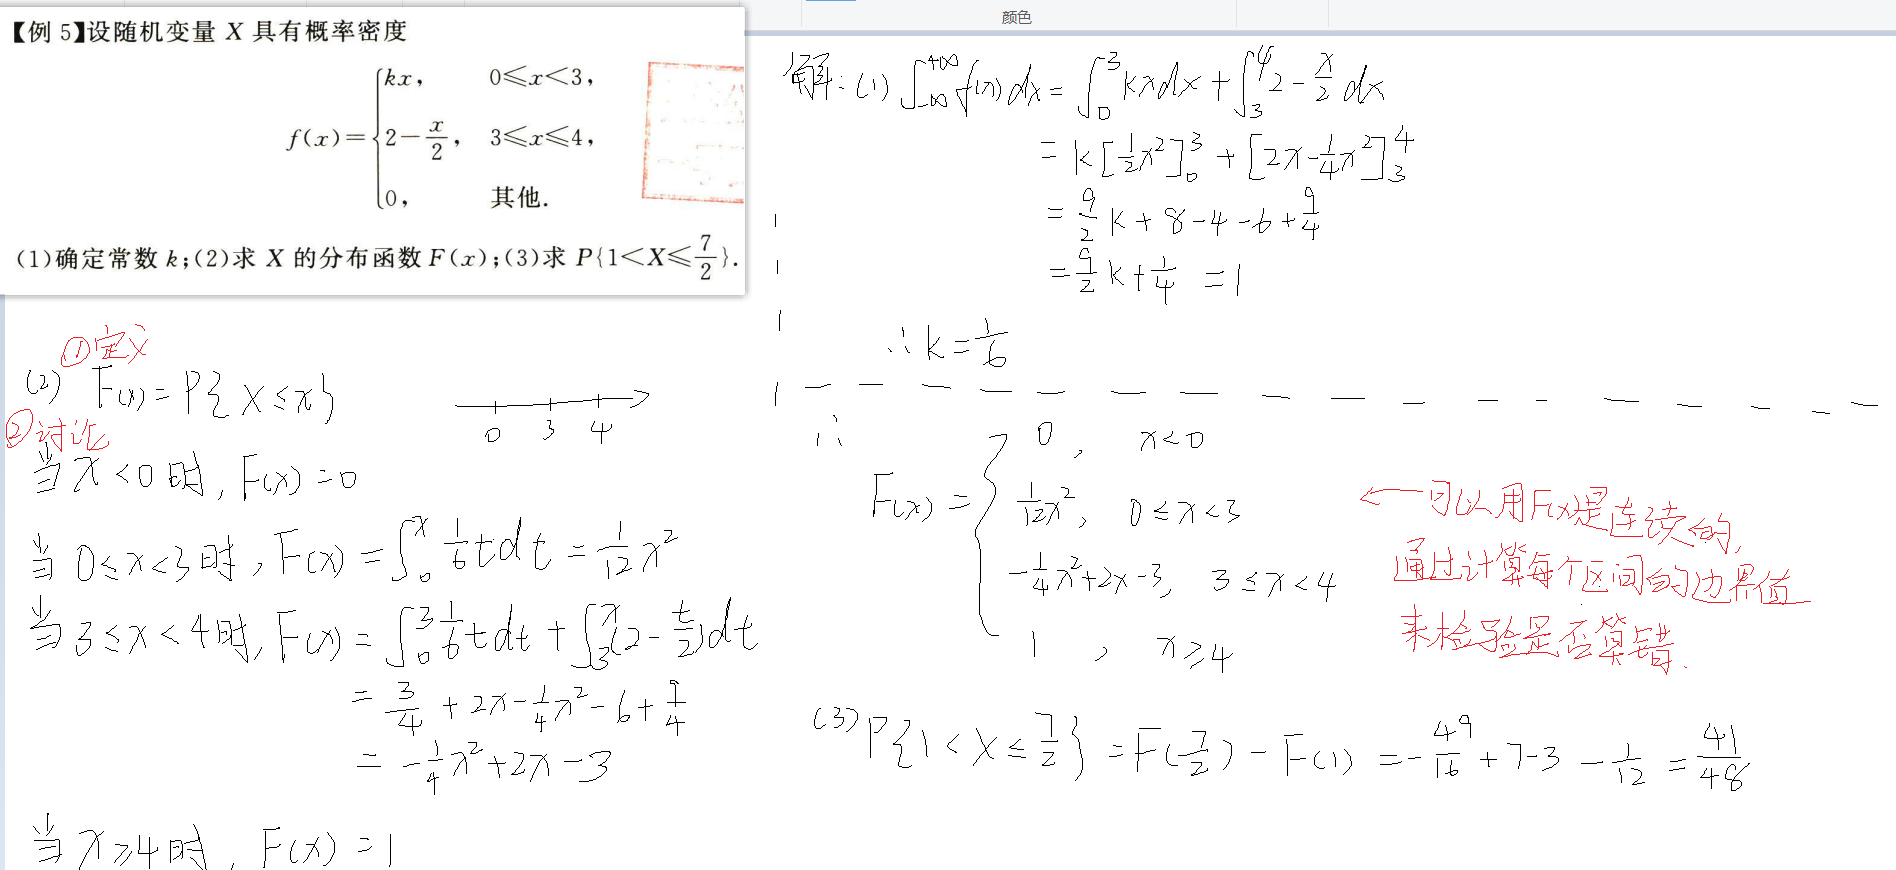 颜色
【例 5】设随机变量 X 具有概率密度
f(x)={kx, 0≤x<3,
2-x/2, 3≤x≤4,
0, 其他.
(1)确定常数 k;(2)求 X 的分布函数 F(x);(3)求 P{1<X≤7/2}.
解:(1) ∫_{-∞}^{+∞} f(x)dx = ∫_0^3 kxdx + ∫_3^4 2-x/2 dx
= k[1/2 x²]_0^3 + [2x-1/4 x²]_3^4
= 9/2 k + 8-4-6+9/4
= 9/2 k + 1/4 = 1
∴ k = 1/6
①定义
(2) F(x) = P{X≤x}
0 3 4
②讨论
当 x<0 时, F(x)=0
当 0≤x<3 时, F(x) = ∫_0^x 1/6 t dt = 1/12 x²
当 3≤x<4 时, F(x) = ∫_0^3 1/6 t dt + ∫_3^x (2-t/2)dt
= 3/4 + 2x - 1/4 x² - 6 + 9/4
= -1/4 x² + 2x - 3
当 x≥4 时, F(x) = 1
∴
F(x) = { 0, x<0
1/12 x², 0≤x<3
-1/4 x²+2x-3, 3≤x<4
1, x≥4
←可以用F(x)是连续的,
通过计算每个区间的边界值
来检验是否算错.
(3) P{1<X≤7/2} = F(7/2) - F(1) = -49/16 + 7-3 - 1/12 = 41/48